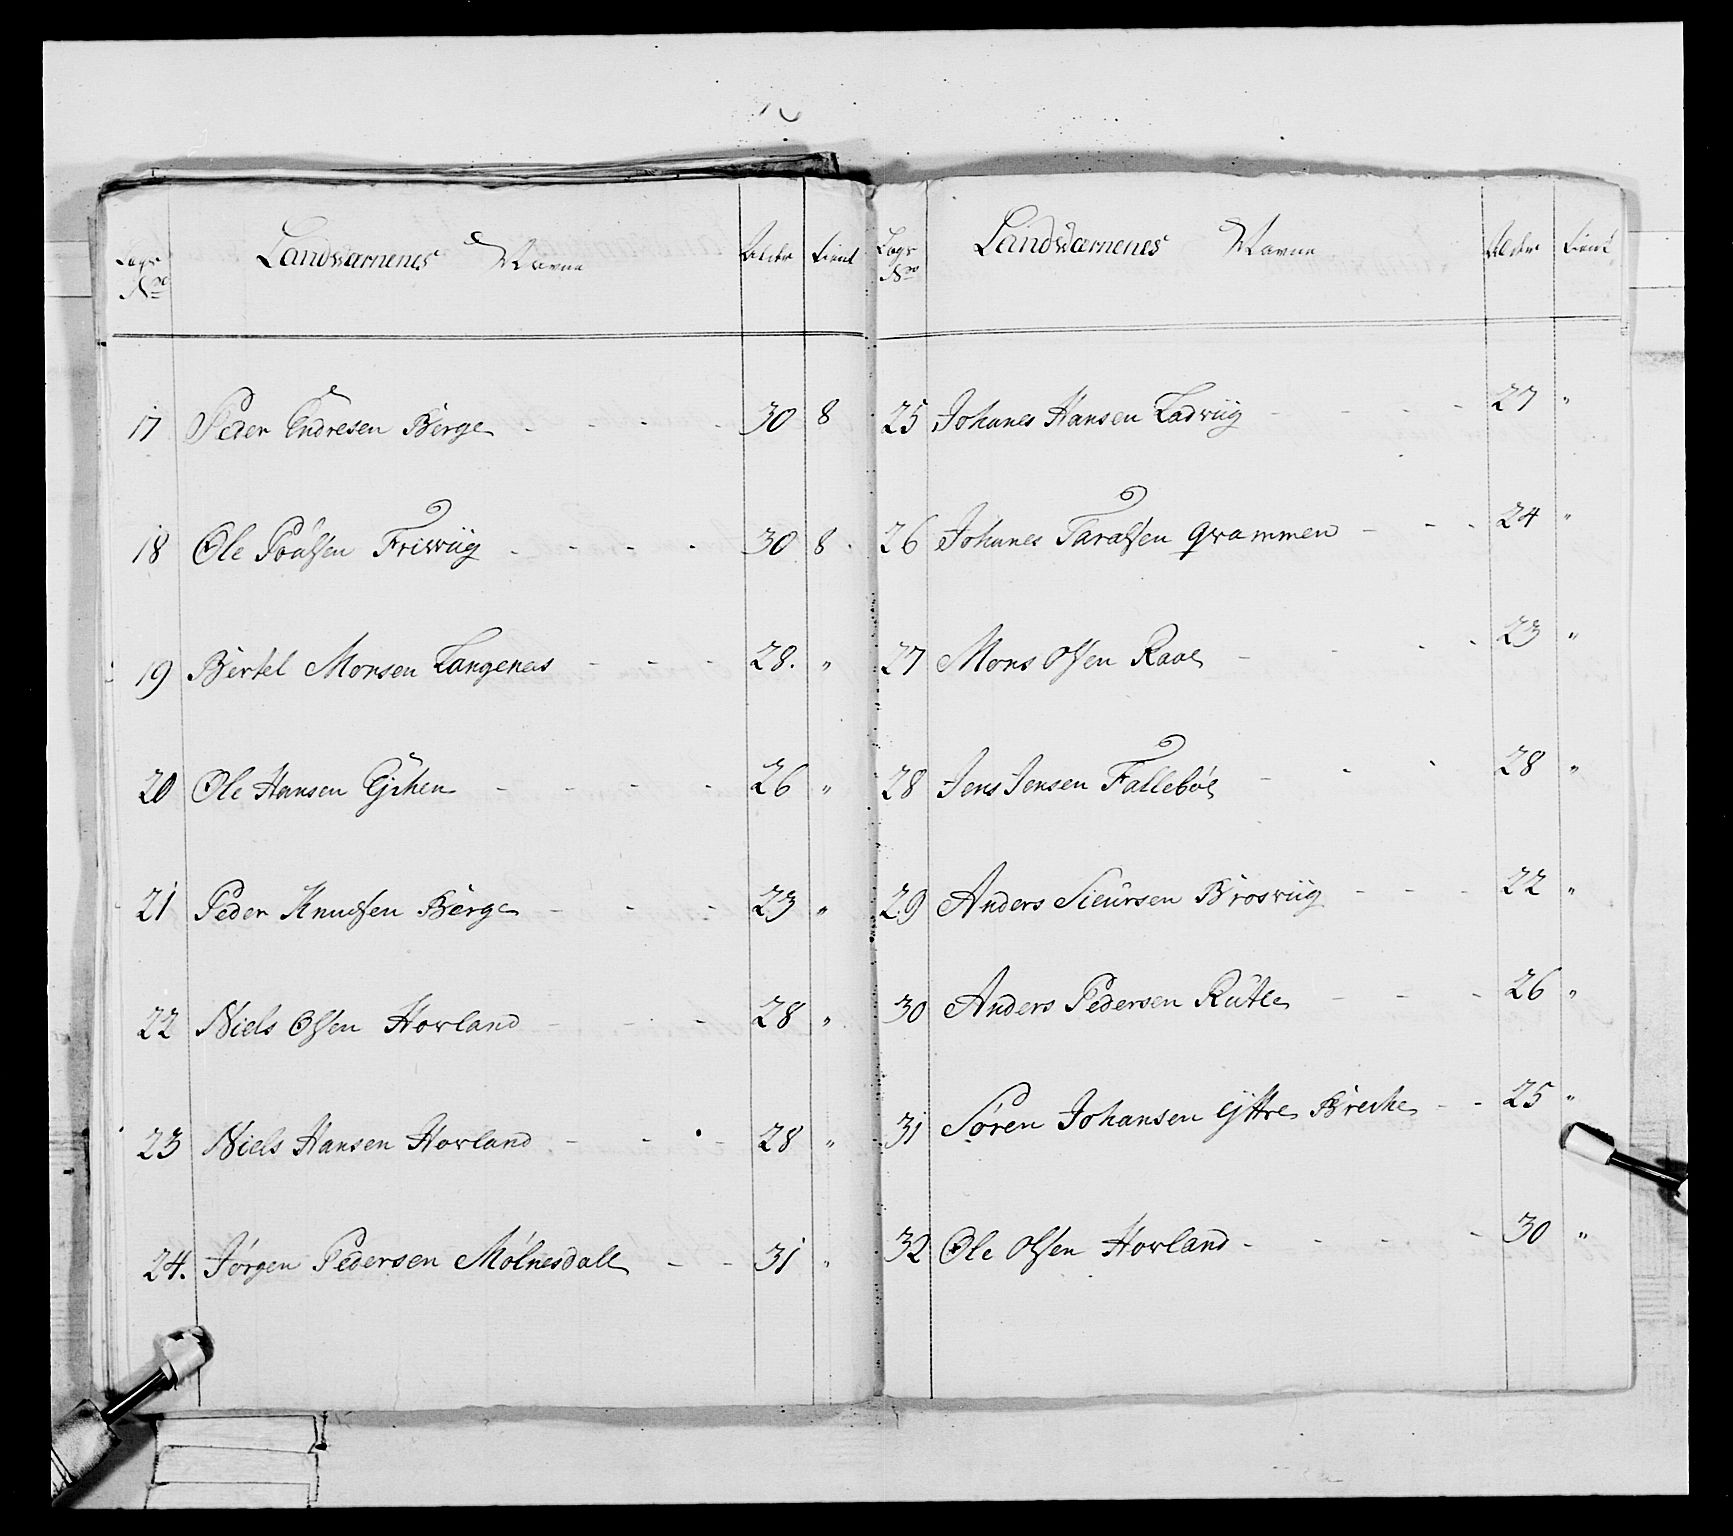 Lægs No Landværnenes Navne Alder Tient
17 Peder Endresen Berge 30 8
18 Ole Poulsen Friviig 30 8
19 Bertel Monsen Langenæs 28. "
20 Ole Hansen 26 "
21 Peder Knudsen Berge 23 "
22 Niels Olsen Hovland 28 "
23 Niels Hansen Hovland 28 "
24. Jørgen Pedersen Mølnesdall 31 "
Lægs No Landværnenes Navne Alder Tient
25 Johanes Hansen Ladviig 27 "
26 Johanes Taralsen qvammen 24 "
27 Mons Olsen Raae 23 "
28 Jens Jensen Fallebøe 28 "
29 Anders Sieursen Brosviig 22 "
30 Anders Pedersen Rutle 26 "
31 Søren Johansen Yttre Brecke 25 "
32 Ole Olsen Hovland 30 "